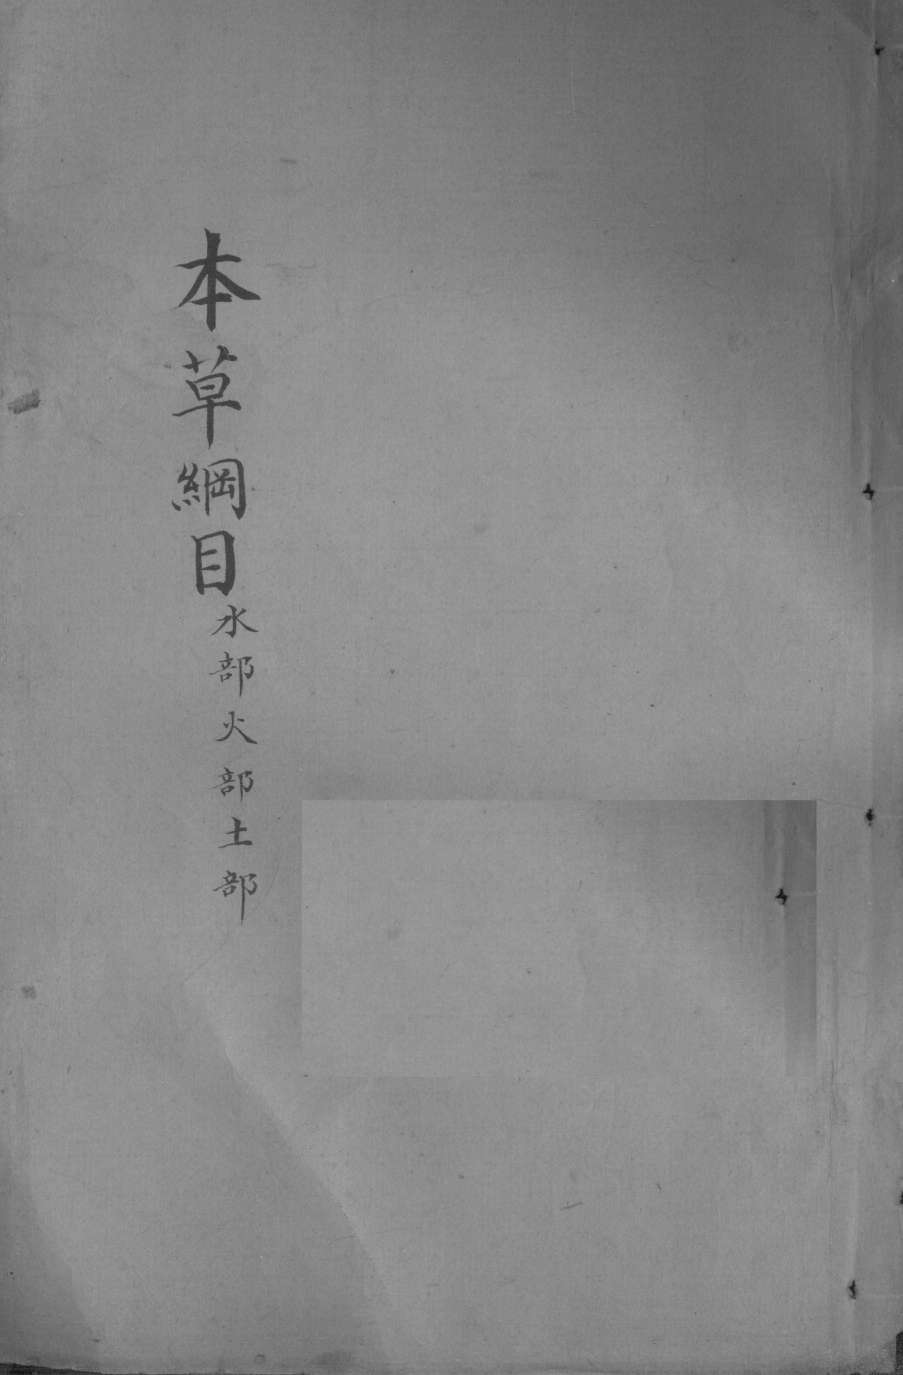 本草綱目
水部火部土部